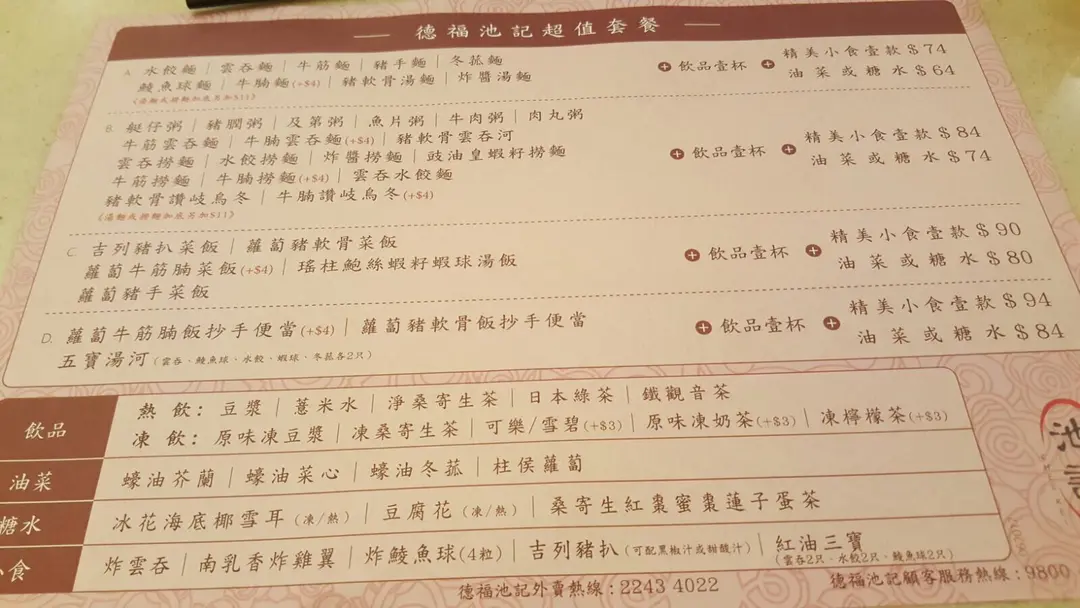 德福池記超值套餐
A. 水餃麵｜雲吞麵｜牛筋麵｜豬手麵｜冬菰麵
鯪魚球麵｜牛腩麵(+$4)｜豬軟骨湯麵｜炸醬湯麵
《湯麵或撈麵加底另加$11》
+ 飲品壹杯 + 精美小食壹款 $74
油菜或糖水 $64
B. 艇仔粥｜豬膶粥｜及第粥｜魚片粥｜牛肉粥｜肉丸粥
牛筋雲吞麵｜牛腩雲吞麵(+$4)｜豬軟骨雲吞河
雲吞撈麵｜水餃撈麵｜炸醬撈麵｜豉油皇蝦籽撈麵
牛筋撈麵｜牛腩撈麵(+$4)｜雲吞水餃麵
豬軟骨讚岐烏冬｜牛腩讚岐烏冬(+$4)
《湯麵或撈麵加底另加$11》
+ 飲品壹杯 + 精美小食壹款 $84
油菜或糖水 $74
C. 吉列豬扒菜飯｜蘿蔔豬軟骨菜飯
蘿蔔牛筋腩菜飯(+$4)｜瑤柱鮑絲蝦籽蝦球湯飯
蘿蔔豬手菜飯
+ 飲品壹杯 + 精美小食壹款 $90
油菜或糖水 $80
D. 蘿蔔牛筋腩飯抄手便當(+$4)｜蘿蔔豬軟骨飯抄手便當
五寶湯河(雲吞、鯪魚球、水餃、蝦球、冬菰各2只)
+ 飲品壹杯 + 精美小食壹款 $94
油菜或糖水 $84
飲品
熱飲：豆漿｜薏米水｜淨桑寄生茶｜日本綠茶｜鐵觀音茶
凍飲：原味凍豆漿｜凍桑寄生茶｜可樂/雪碧(+$3)｜原味凍奶茶(+$3)｜凍檸檬茶(+$3)
油菜
蠔油芥蘭｜蠔油菜心｜蠔油冬菰｜柱侯蘿蔔
糖水
冰花海底椰雪耳(凍/熱)｜豆腐花(凍/熱)｜桑寄生紅棗蜜棗蓮子蛋茶
小食
炸雲吞｜南乳香炸雞翼｜炸鯪魚球(4粒)｜吉列豬扒(可配黑椒汁或甜酸汁)｜紅油三寶
(雲吞2只、水餃2只、鯪魚球2只)
德福池記外賣熱線：2243 4022
德福池記顧客服務熱線：9800
池記